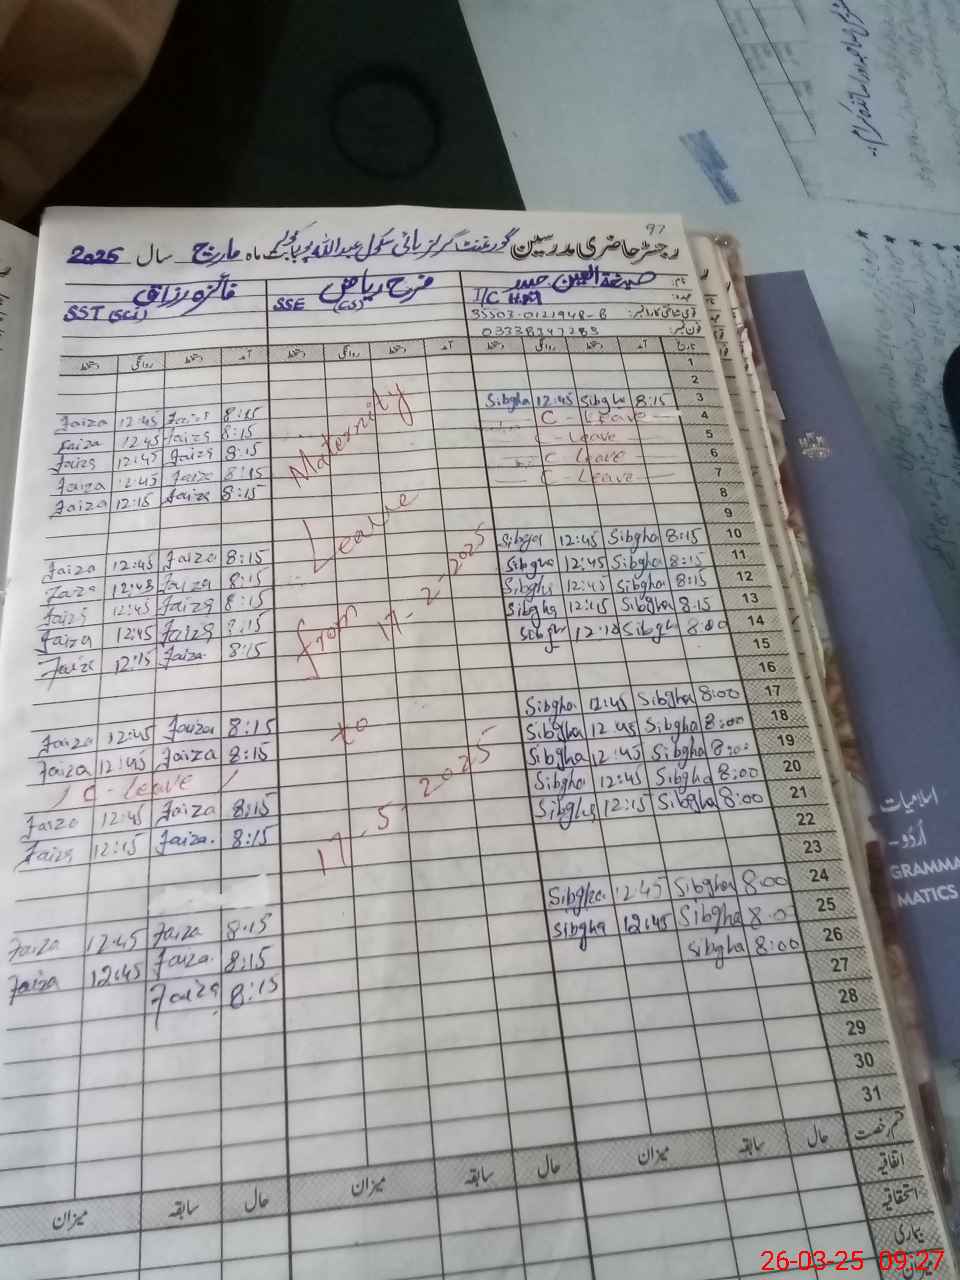 97
رجسٹر حاضری مدرسین گورنمنٹ گرلز ہائی سکول عبداللہ پور بابت ماہ مارچ سال 2025
نام: صبغۃ العین حیدر فرح ریاض فائزہ رزاق
عہدہ: I/C H.M SSE (CS) SST (Sci)
قومی شناختی کارڈ نمبر:
فون نمبر: 03338347283
تاریخ آمد دستخط روانگی دستخط آمد دستخط روانگی دستخط آمد دستخط روانگی دستخط
1
2
Faiza 12:45 Faiza 8:15 Sibgha 12:45 Sibgha 8:15 3
Faiza 12:45 Faiza 8:15 C-Leave 4
Faiza 12:45 Faiza 8:15 C-Leave 5
Faiza 12:45 Faiza 8:15 C-Leave 6
Faiza 12:15 Faiza 8:15 C-Leave 7
8
9
Faiza 12:45 Faiza 8:15 Sibgha 12:45 Sibgha 8:15 10
Faiza 12:45 Faiza 8:15 Sibgha 12:45 Sibgha 8:15 11
Faiza 12:45 Faiza 8:15 Sibgha 12:45 Sibgha 8:15 12
Faiza 12:45 Faiza 8:15 Sibgha 12:45 Sibgha 8:15 13
Faiza 12:15 Faiza 8:15 Sibgha Sibgha 8:00 14
15
16
Faiza 12:45 Faiza 8:15 Sibgha 12:45 Sibgha 8:00 17
Faiza 12:45 Faiza 8:15 Sibgha 12:45 Sibgha 8:00 18
C-Leave Sibgha 12:45 Sibgha 8:00 19
Faiza 12:45 Faiza 8:15 Sibgha 12:45 Sibgha 8:00 20
Faiza 12:15 Faiza 8:15 Sibgha 12:15 Sibgha 8:00 21
22
23
Faiza 12:45 Faiza 8:15 Sibgha 12:45 Sibgha 8:00 24
Faiza 12:45 Faiza 8:15 Sibgha 12:45 Sibgha 8:00 25
Faiza 8:15 Sibgha 8:00 26
27
28
29
30
31
Maternity
Leave
from 17-2-2025
to
17-5-2025
قسم رخصت حال سابقہ میزان حال سابقہ میزان حال سابقہ میزان
اتفاقیہ
استحقاقیہ
بیماری
میزان
اسلامیات
اُردو
GRAMMA
MATICS
26-03-25 09:27